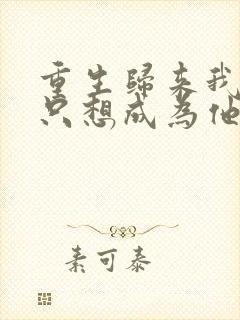 重生歸來我
只想成為他
素可泰